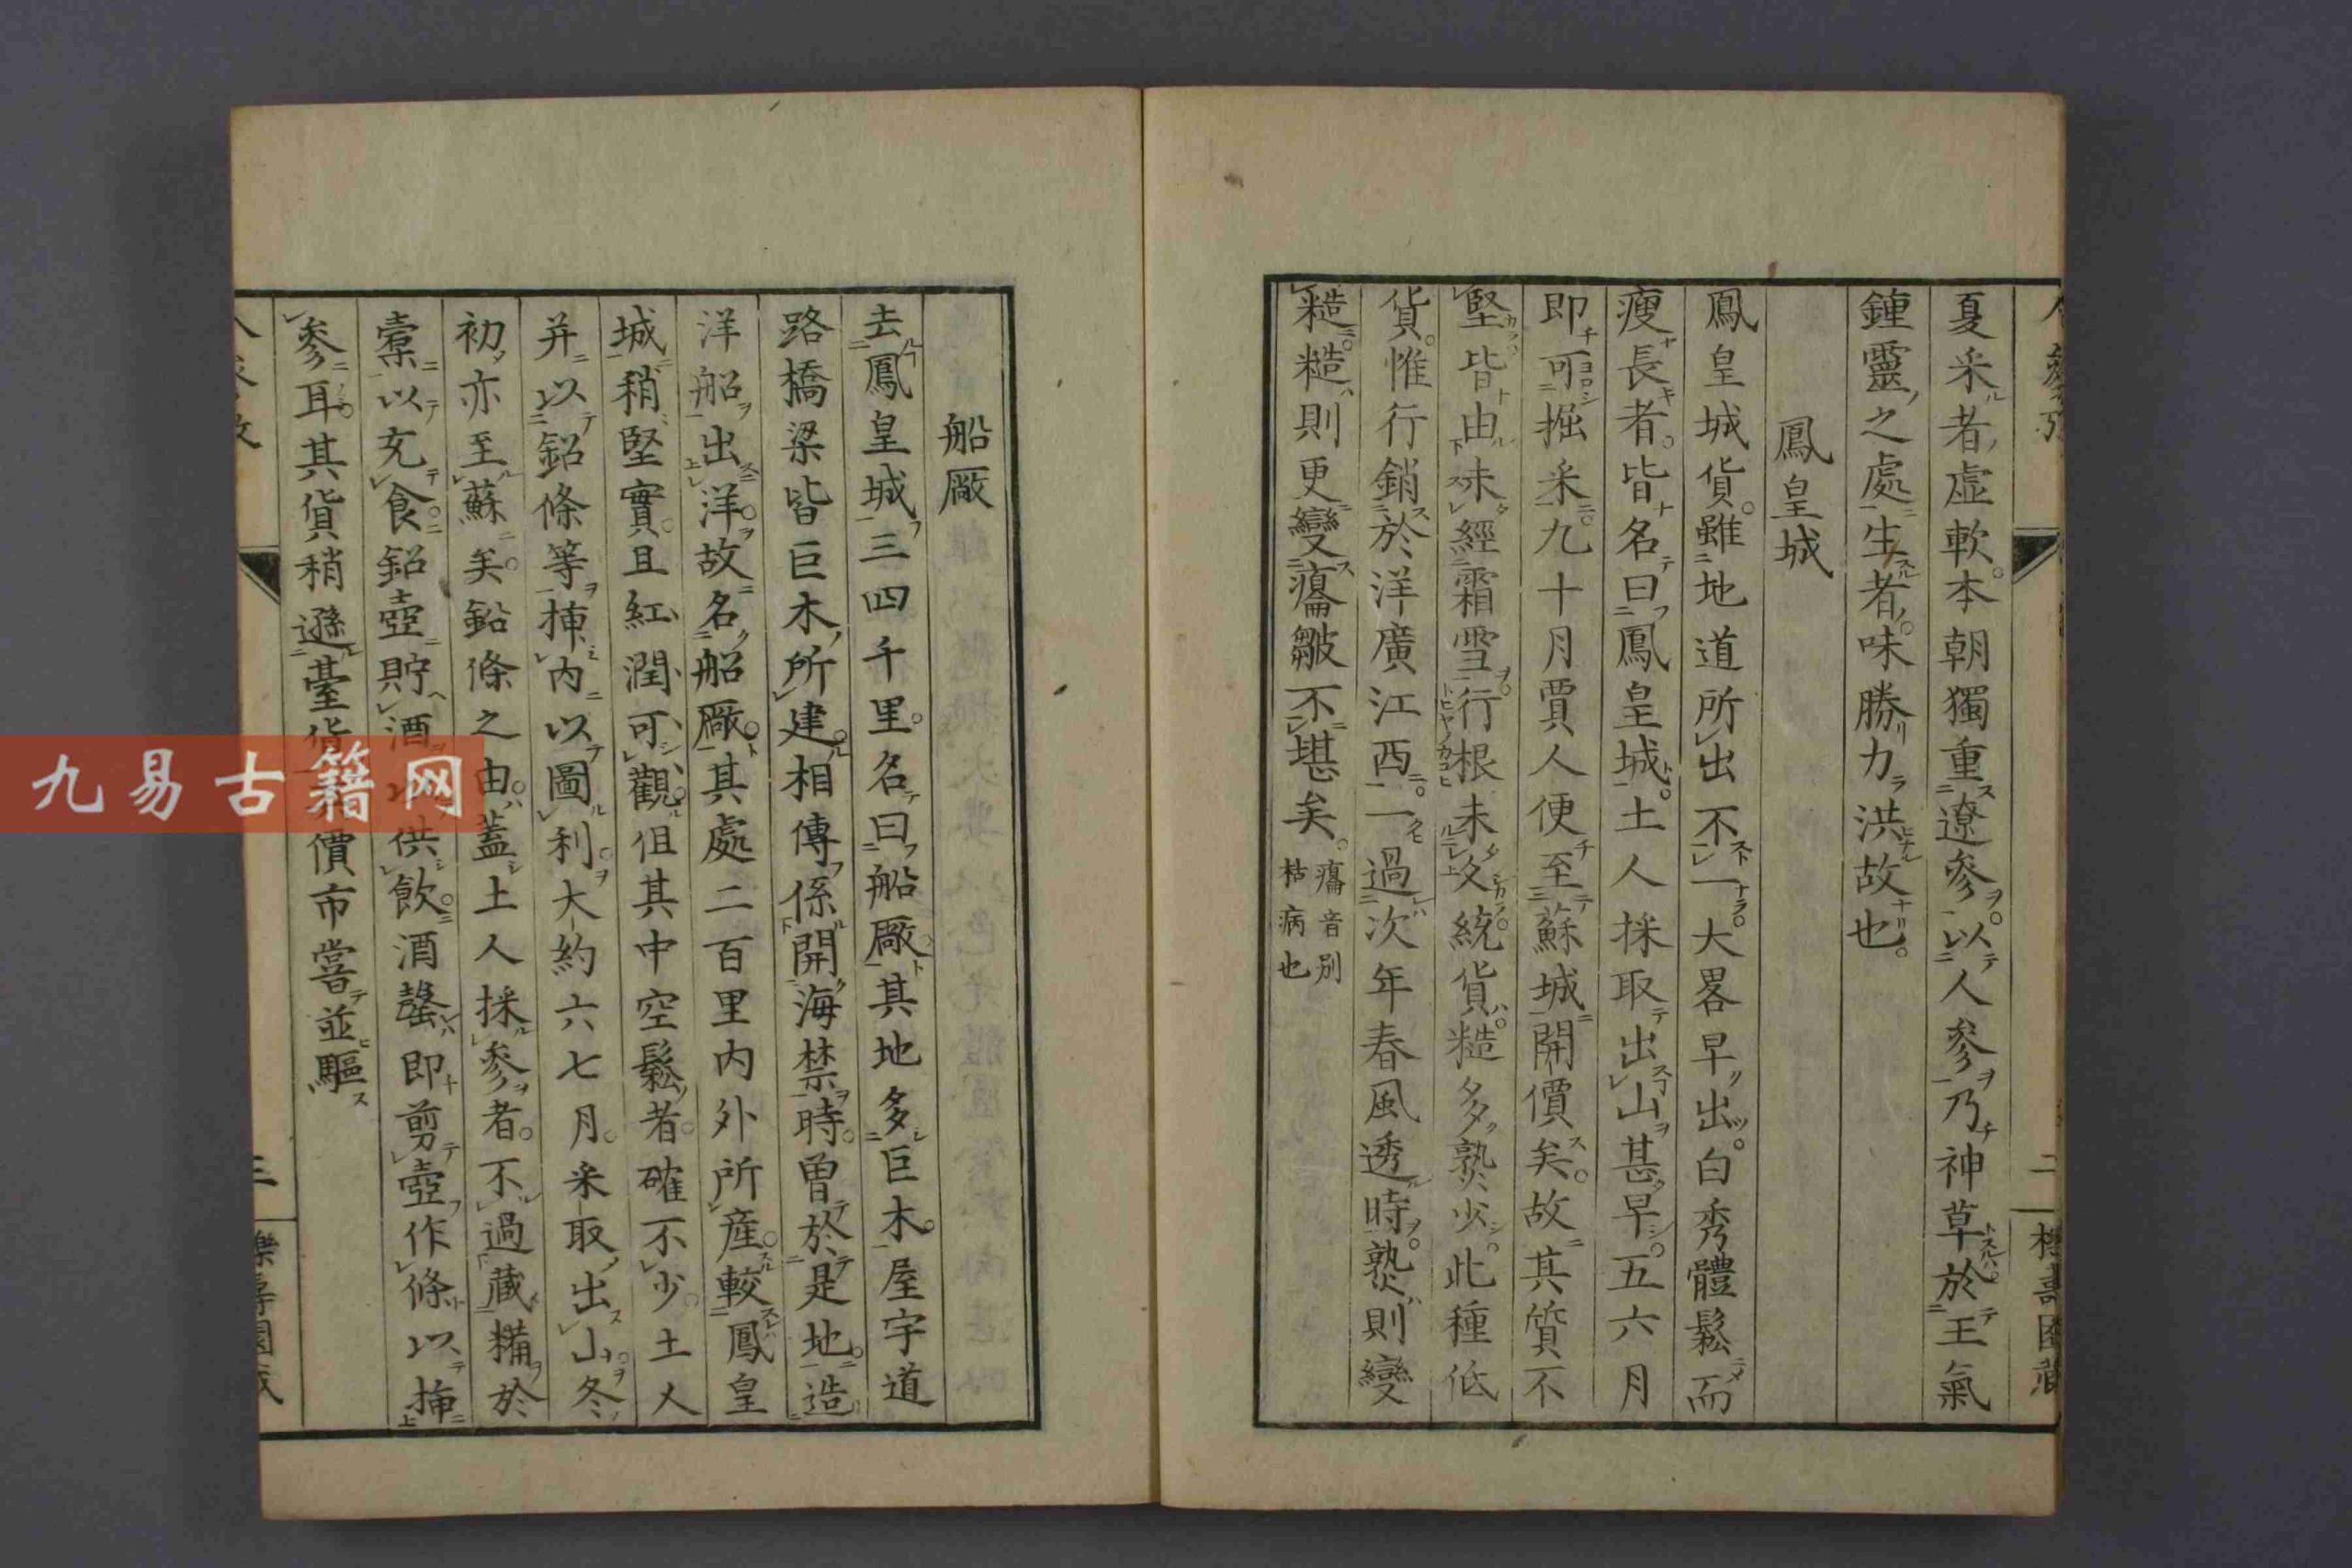 夏采者虛軟本朝獨重遼參以人參乃神草於王氣
鍾靈之處生者味勝力洪故也
鳳皇城
鳳皇城貨雖地道所出不一大畧早出白秀體鬆而
瘦長者皆名曰鳳皇城土人採取出山甚早五六月
即可掘采九十月賈人便至蘇城開價矣故其質不
堅皆由未經霜雪行根未久統貨糙多熟少此種低
貨惟行銷於洋廣江西一過次年春風透時熟則變
糙糙則更變癟皺不堪矣癟音別
枯病也
船厰
去鳳皇城三四千里名曰船厰其地多巨木屋宇道
路橋梁皆巨木所建相傳係開海禁時曾於是地造
洋船出洋故名船厰其處二百里內外所産較鳳皇
城稍堅實且紅潤可觀但其中空鬆者確不少土人
并以鉛條等㨂內以圖利大約六七月采取出山冬
初亦至蘇矣鉛條之由蓋土人採參者不過藏糒於
橐以充食鉛壺貯酒以供飲酒罄即剪壺作條以插
參耳其貨稍遜臺貨價市嘗並驅
二
三
九易古籍网